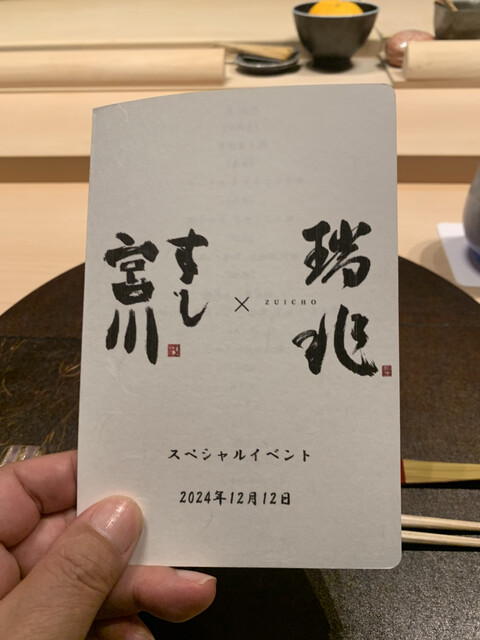 すし
宮川
×
瑞兆
ZUICHO
スペシャルイベント
2024年12月12日